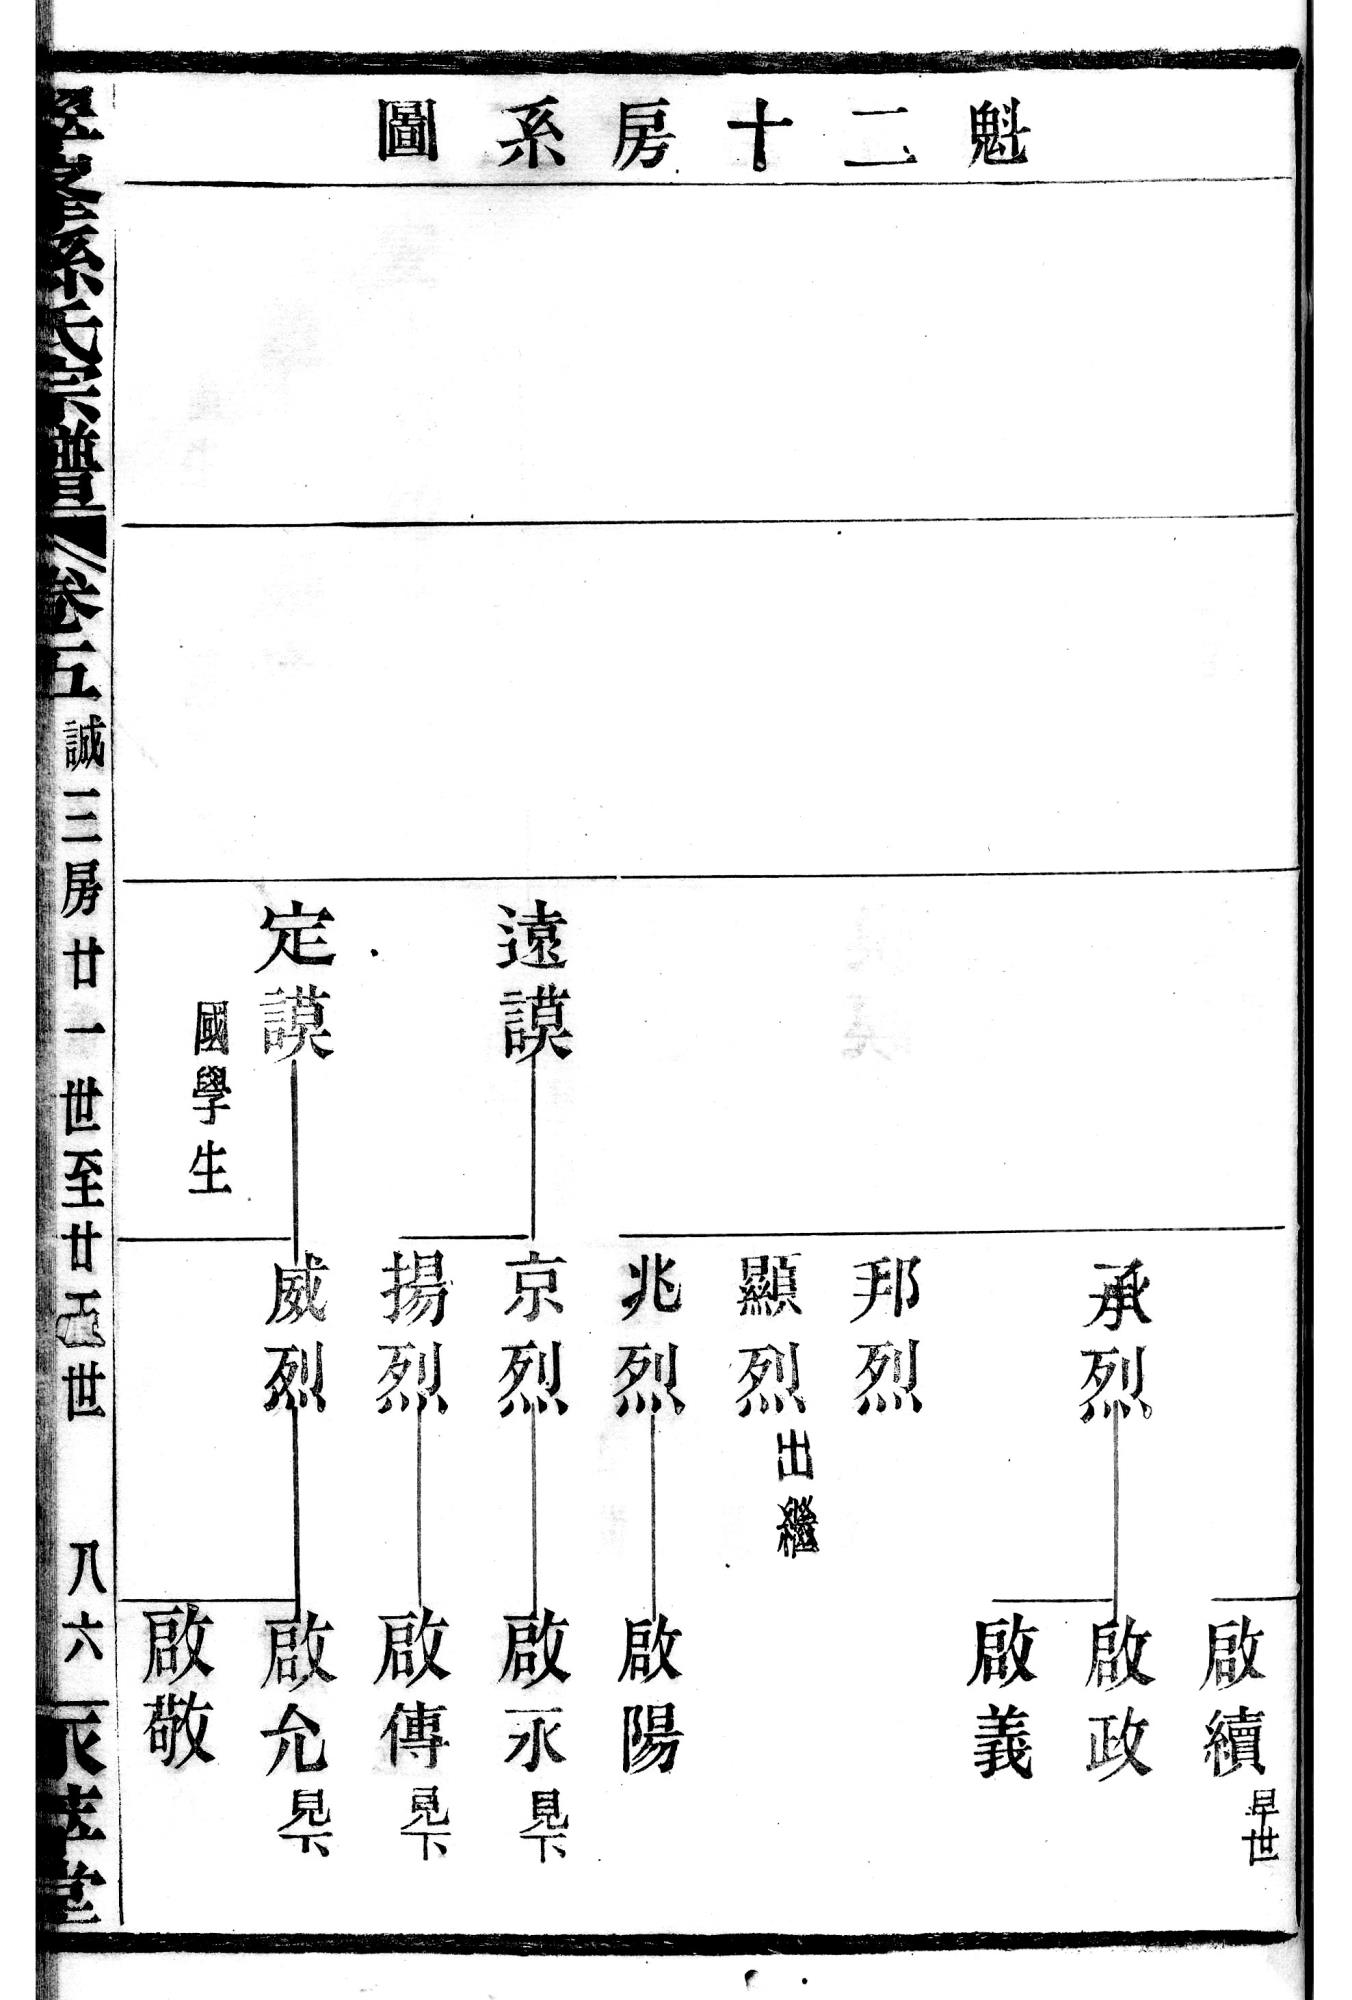 魁二十房系圖
遠謨
定謨
國學生
承烈
邦烈
顯烈
出繼
兆烈
京烈
揚烈
威烈
啟續
早世
啟政
啟義
啟陽
啟永
見下
啟傳
見下
啟允
見下
啟敬
孫氏宗譜
卷五
誠三房廿一世至廿五世
八六
堂